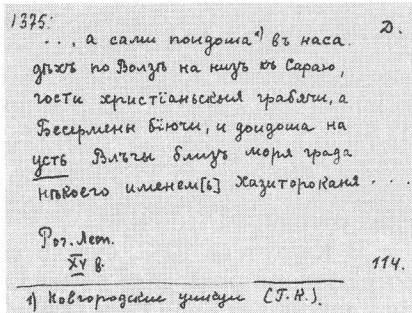 1375: Д.
..., а сами поидоша¹⁾ въ наса
дѣхъ по Волзѣ на низъ къ Сараю,
гости христїаньскыя грабячи, а
Бесермены бїючи, и доидоша на
усть Влъгы близъ моря града
нѣкоего именем[ь] Хазитороканя ...
Рог. Лет.
XV в. 114.
1) Новгородские ушкуи (Г.К.).